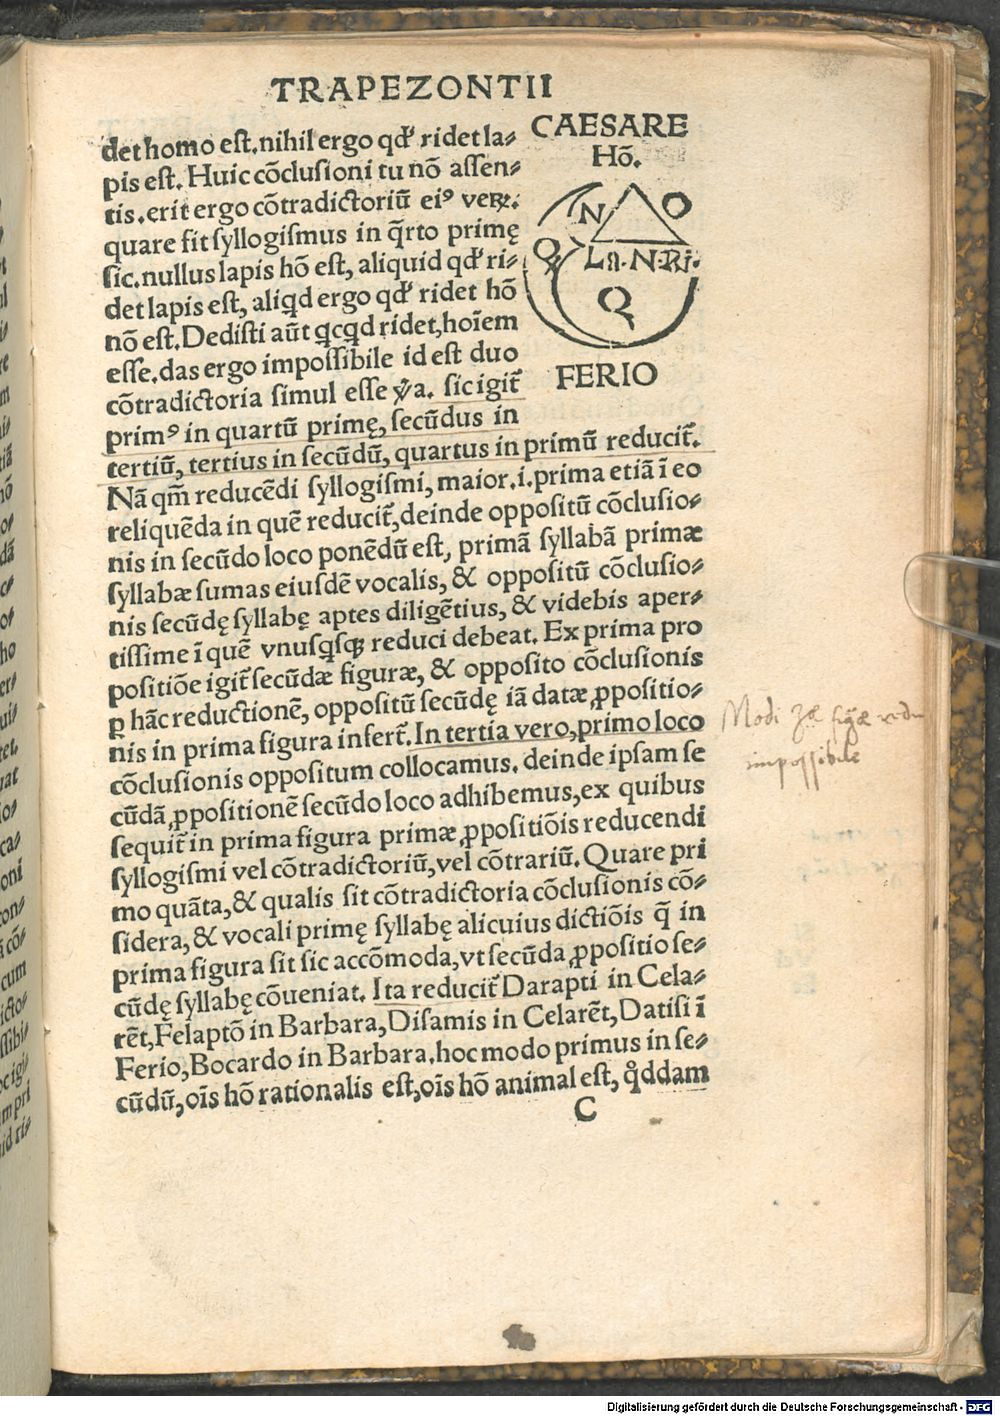 TRAPEZONTII
det homo est. nihil ergo qđ ridet la-
pis est. Huic cõclusioni tu nõ assen-
tis. erit ergo cõtradictoriũ eiꝰ veꝝ.
quare fit syllogismus in q̃rto primę
sic. nullus lapis hõ est, aliquid qđ ri-
det lapis est, aliqd ergo qđ ridet hõ
nõ est. Dedisti aũt qcqd ridet, hoĩem
esse. das ergo impossibile id est duo
cõtradictoria simul esse ỿa. sic igit̃
primꝰ in quartũ primę, secũdus in
tertiũ, tertius in secũdũ, quartus in primũ reducit̃.
CAESARE
Hõ.
N O
Q La. N. Ri.
Q
FERIO
Nã qm̃ reducẽdi syllogismi, maior .i. prima etiã ĩ eo
reliquẽda in quẽ reducit̃, deinde oppositũ cõclusio-
nis in secũdo loco ponẽdũ est, primã syllabã primæ
syllabæ sumas eiusdẽ vocalis, & oppositũ cõclusio-
nis secũdę syllabę aptes diligẽtius, & videbis aper-
tissime ĩ quẽ vnusqsqꝫ reduci debeat. Ex prima pro
positiõe igit̃ secũdæ figuræ, & opposito cõclusionis
ꝑ hãc reductionẽ, oppositũ secũdę iã datæ ꝓpositio-
nis in prima figura infert̃. In tertia vero, primo loco
cõclusionis oppositum collocamus. deinde ipsam se
cũdã, ꝓpositionẽ secũdo loco adhibemus, ex quibus
sequit̃ in prima figura primæ ꝓpositiõis reducendi
syllogismi vel cõtradictoriũ, vel cõtrariũ. Quare pri
mo quãta, & qualis sit cõtradictoria cõclusionis cõ-
sidera, & vocali primę syllabę alicuius dictiõis q̃ in
prima figura sit sic accõmoda, vt secũda ꝓpositio se-
cũdę syllabę cõueniat. Ita reducit̃ Darapti in Cela-
rẽt, Felaptõ in Barbara, Disamis in Celarẽt, Datisi ĩ
Ferio, Bocardo in Barbara. hoc modo primus in se-
cũdũ, oĩs hõ rationalis est, oĩs hõ animal est, qddam
C
Modi 3æ figæ redu
impossibile
Digitalisierung gefördert durch die Deutsche Forschungsgemeinschaft - DFG